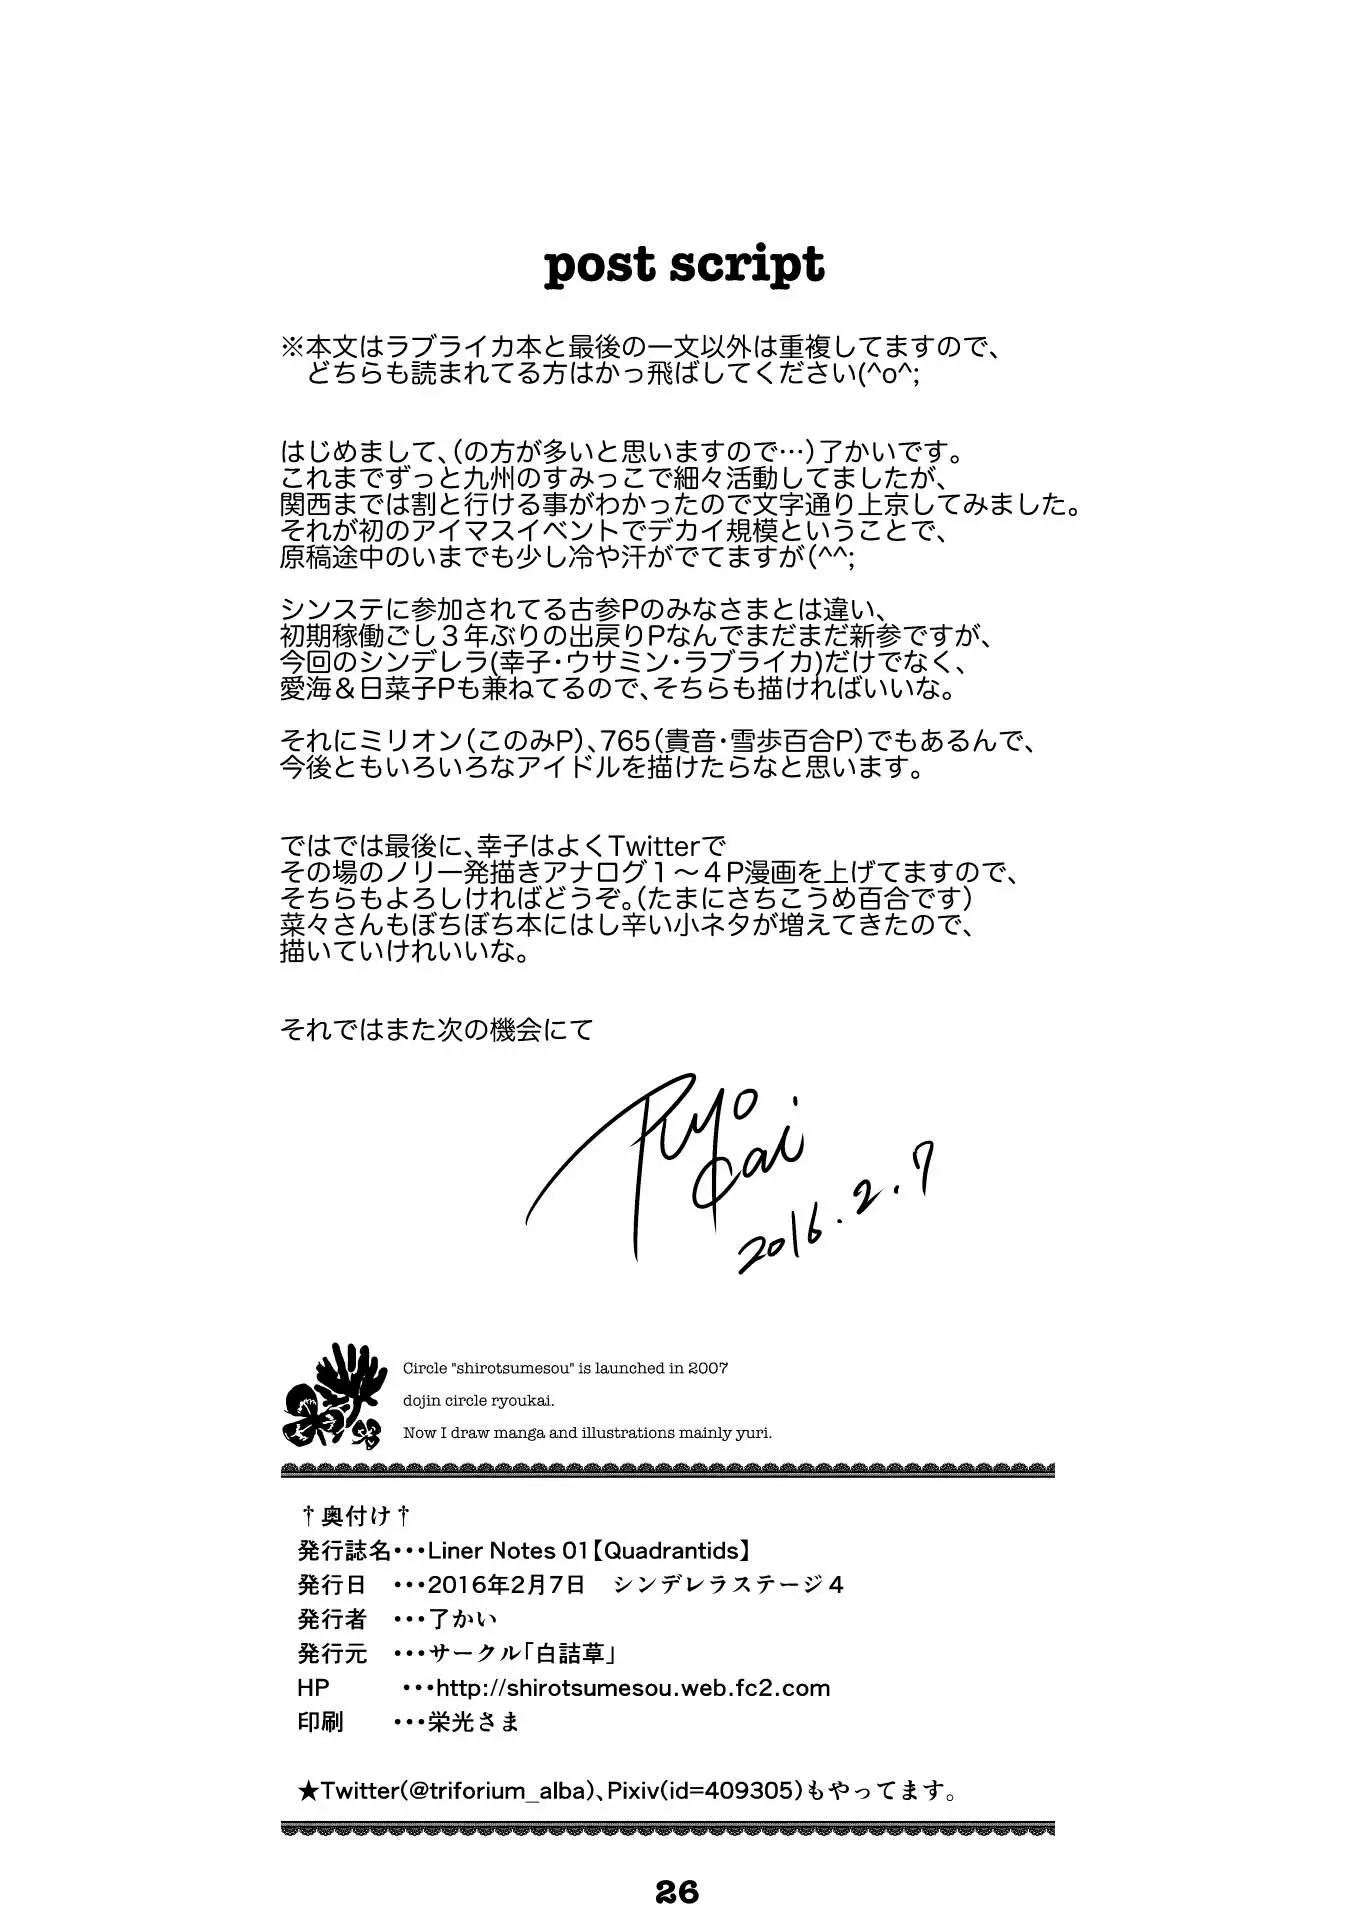 post script
※本文はラブライカ本と最後の一文以外は重複してますので、
どちらも読まれてる方はかっ飛ばしてください(^o^;
はじめまして、（の方が多いと思いますので…）了かいです。
これまでずっと九州のすみっこで細々活動してましたが、
関西までは割と行ける事がわかったので文字通り上京してみました。
それが初のアイマスイベントでデカイ規模ということで、
原稿途中のいまでも少し冷や汗がでてますが（^^;
シンステに参加されてる古参Pのみなさまとは違い、
初期稼働ごし３年ぶりの出戻りPなんでまだまだ新参ですが、
今回のシンデレラ(幸子・ウサミン・ラブライカ)だけでなく、
愛海＆日菜子Pも兼ねてるので、そちらも描ければいいな。
それにミリオン（このみP）、765（貴音・雪歩百合P）でもあるんで、
今後ともいろいろなアイドルを描けたらなと思います。
ではでは最後に、幸子はよくTwitterで
その場のノリ一発描きアナログ１〜４P漫画を上げてますので、
そちらもよろしければどうぞ。（たまにさちこうめ百合です）
菜々さんもぼちぼち本にはし辛い小ネタが増えてきたので、
描いていけれいいな。
それではまた次の機会にて
Ryo
Kai
2016.2.7
Circle "shirotsumesou" is launched in 2007
dojin circle ryoukai.
Now I draw manga and illustrations mainly yuri.
†奥付け†
発行誌名・・・Liner Notes 01【Quadrantids】
発行日　・・・2016年2月7日　シンデレラステージ４
発行者　・・・了かい
発行元　・・・サークル「白詰草」
HP　　　・・・http://shirotsumesou.web.fc2.com
印刷　　・・・栄光さま
★Twitter(@triforium_alba)、Pixiv(id=409305)もやってます。
26